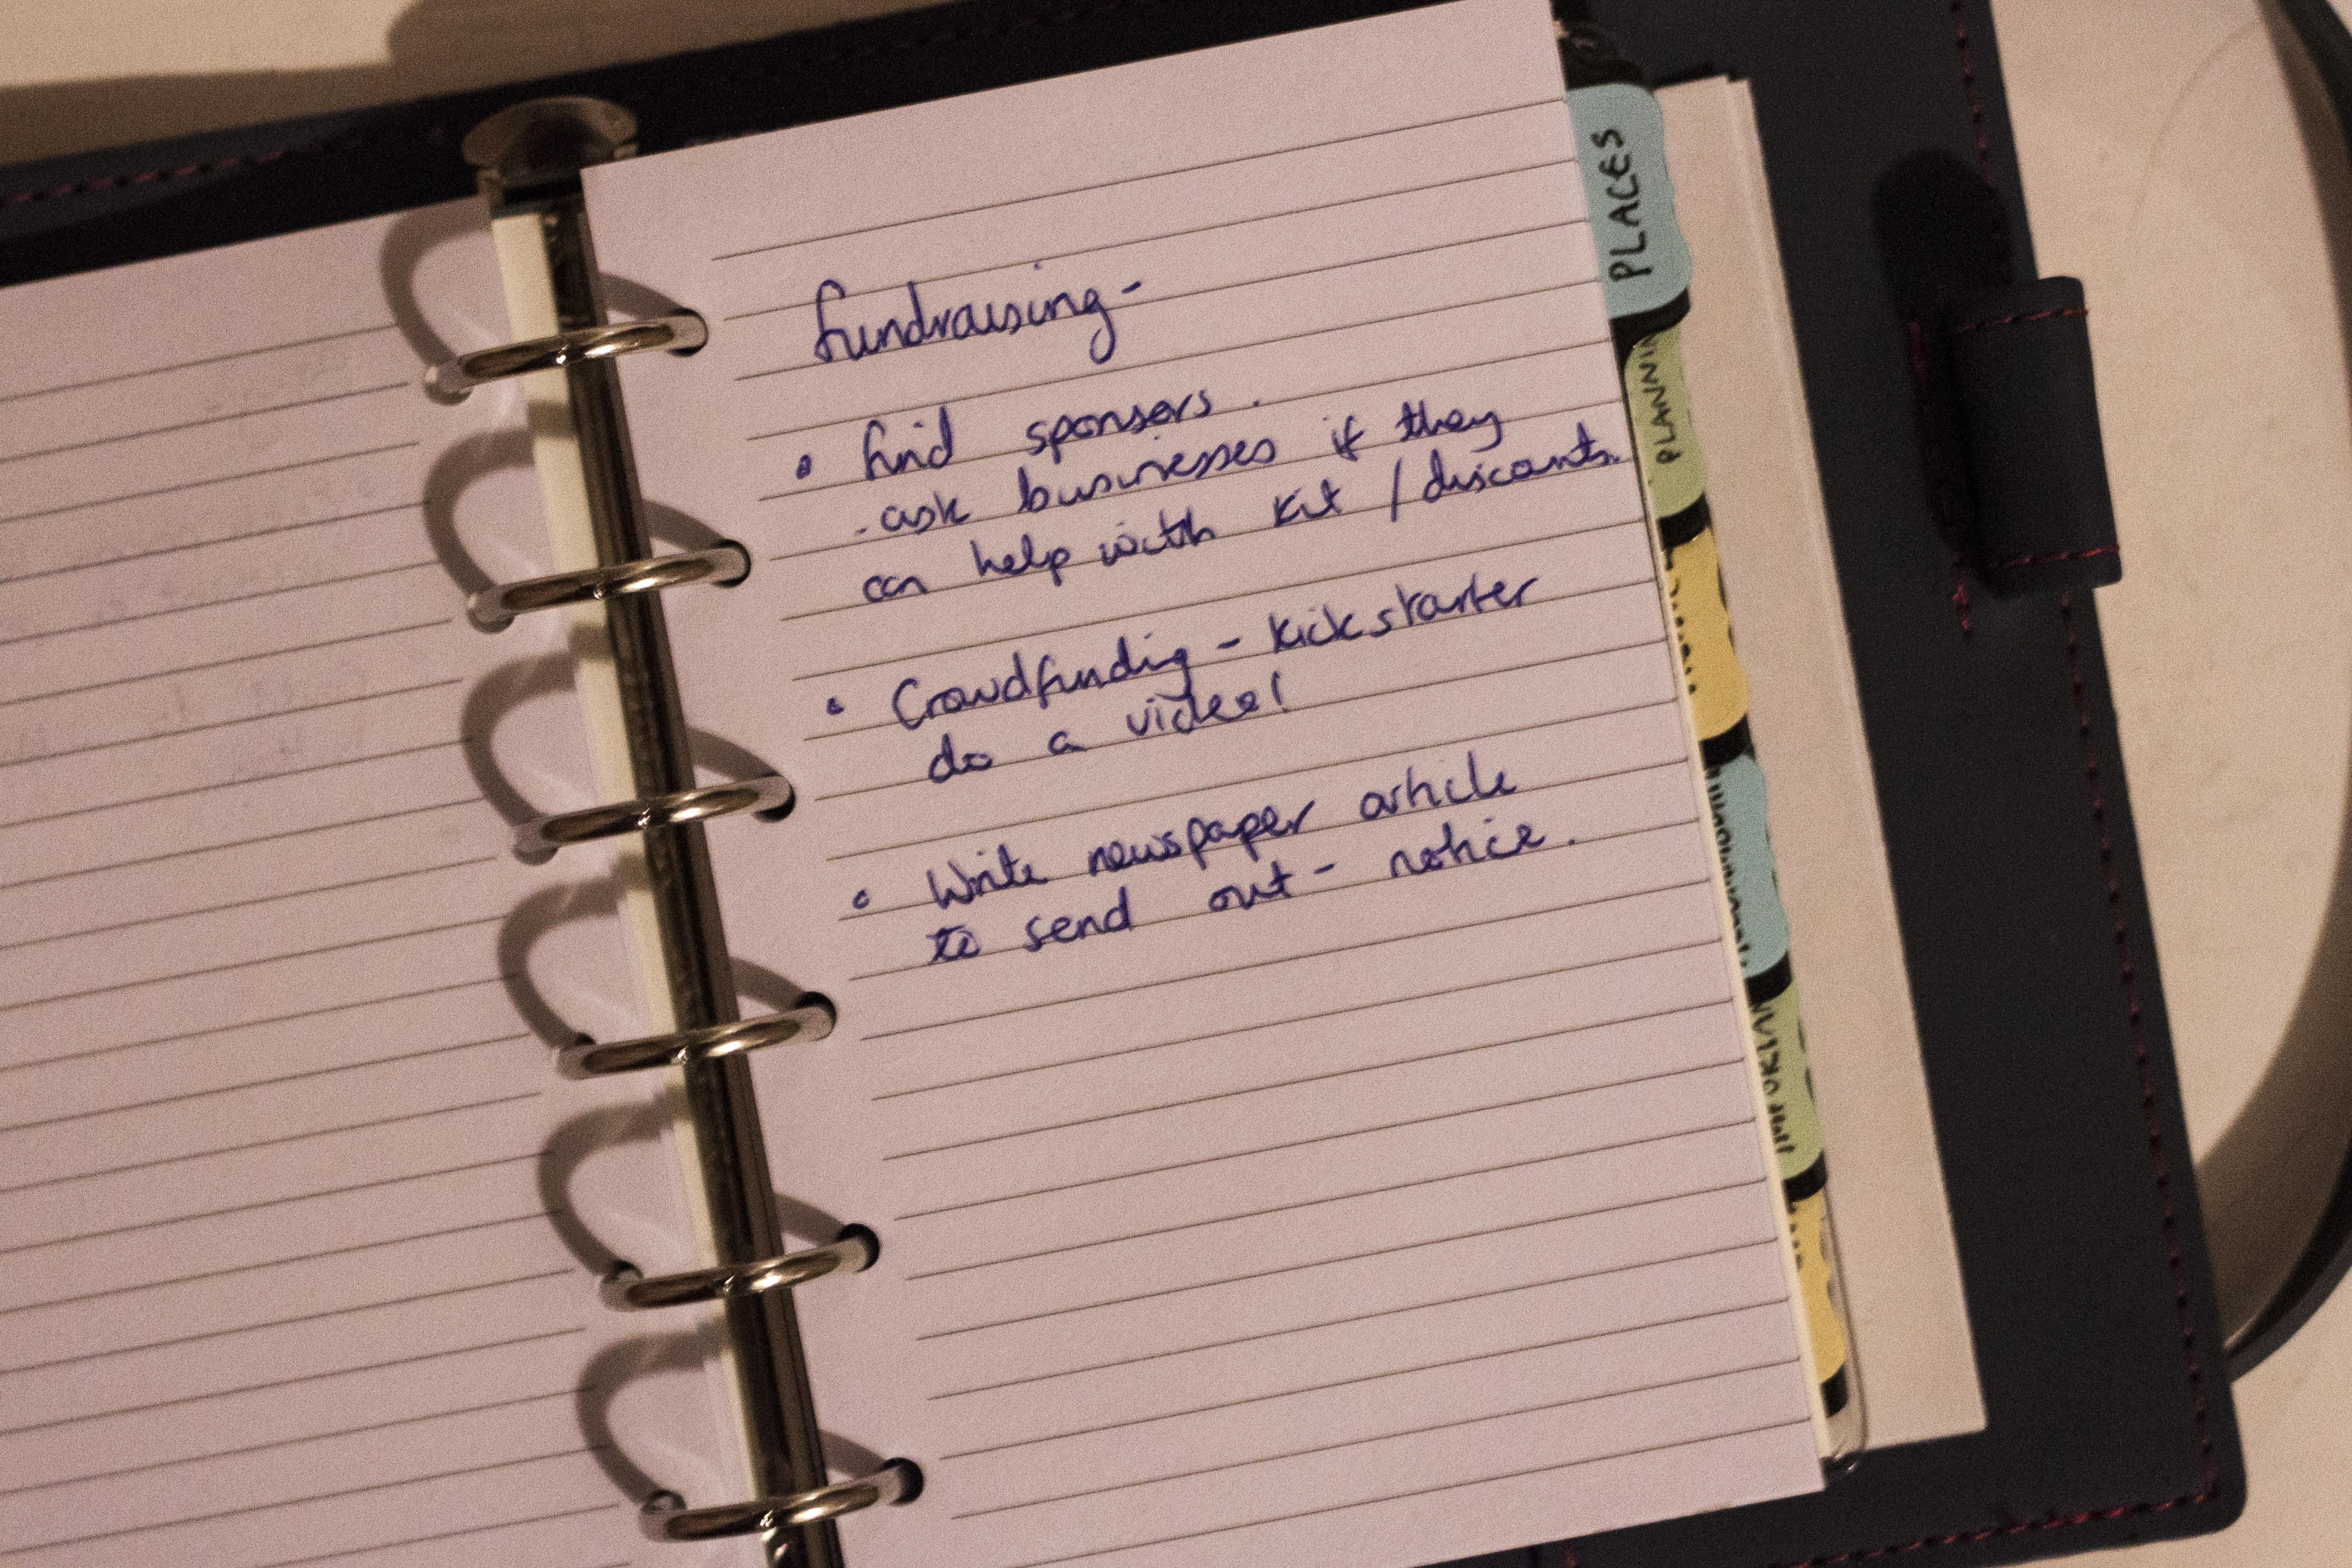 fundraising -
• find sponsors.
- ask businesses if they
can help with kit / discounts.
• Crowdfunding - kickstarter
do a video!
• Write newspaper article
to send out - notice.
PLACES
PLANNIN
IMPORTAN